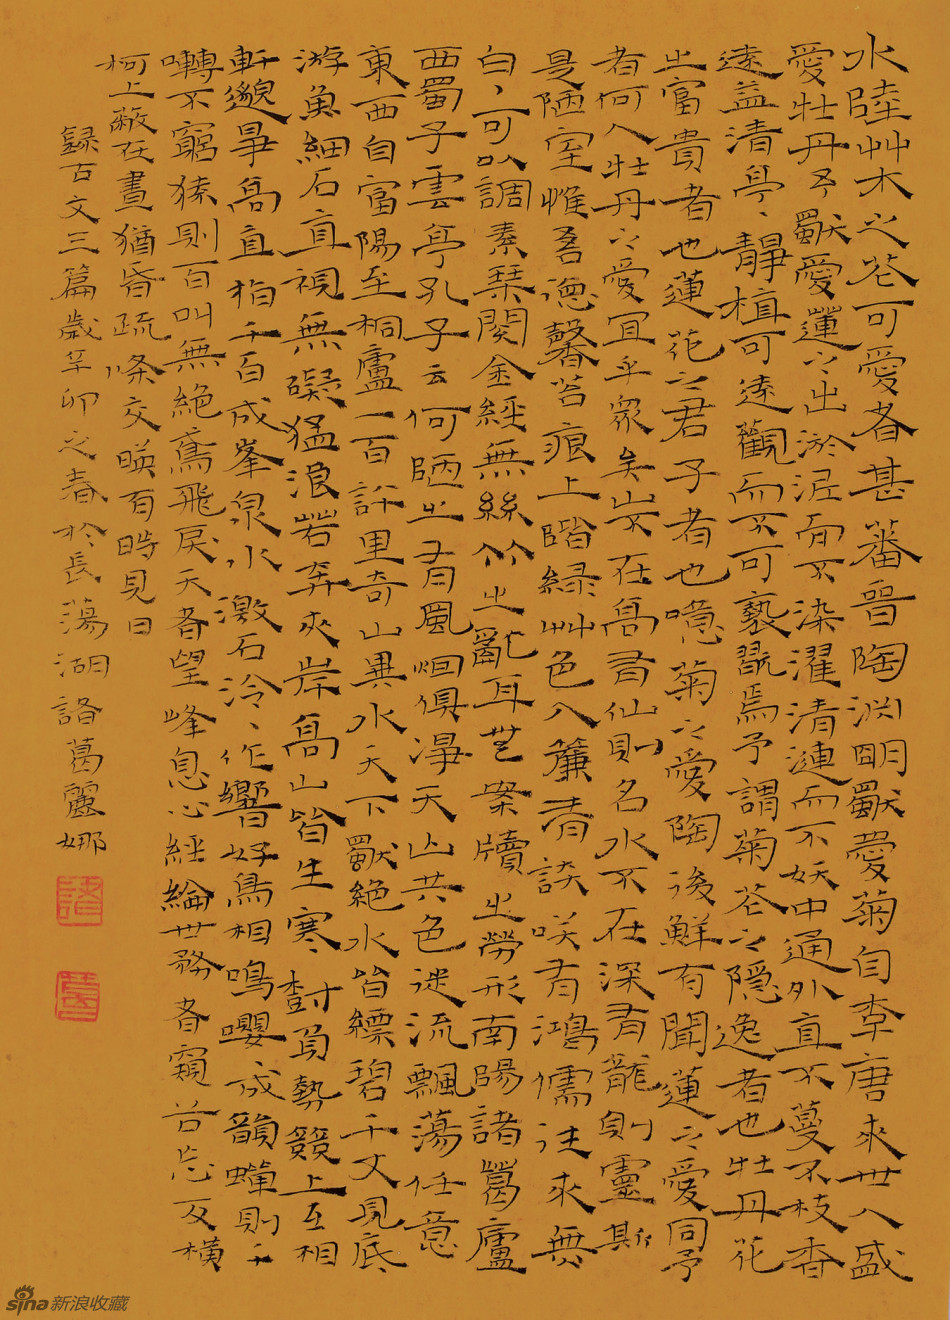 水陸艸木之花可愛者甚蕃晉陶淵明獨愛菊自李唐來世人盛
愛牡丹予獨愛蓮之出淤泥而不染濯清漣而不妖中通外直不蔓不枝香
遠益清亭〻靜植可遠觀而不可褻翫焉予謂菊花之隱逸者也牡丹花
之富貴者也蓮花之君子者也噫菊之愛陶後鮮有聞蓮之愛同予
者何人牡丹之愛宜乎眾矣山不在高有仙則名水不在深有龍則靈斯
是陋室惟吾德馨苔痕上階綠艸色入簾青談咲有鴻儒往來無
白〻可以調素琴閱金經無絲竹之亂耳無案牘之勞形南陽諸葛廬
西蜀子雲亭孔子云何陋之有風煙俱淨天山共色從流飄蕩任意
東西自富陽至桐廬一百許里奇山異水天下獨絕水皆縹碧千丈見底
游魚細石直視無礙猛浪若奔夾岸高山皆生寒樹負勢競上互相
軒邈爭高直指千百成峯泉水激石泠〻作響好鳥相鳴嚶〻成韻蟬則千
囀不窮猿則百叫無絕鳶飛戾天者望峰息心經綸世務者窺谷忘反橫
柯上蔽在晝猶昏疏條交暎有時見日
錄古文三篇歲辛卯之春於長蕩湖諸葛麗娜
諸
葛
sina新浪收藏